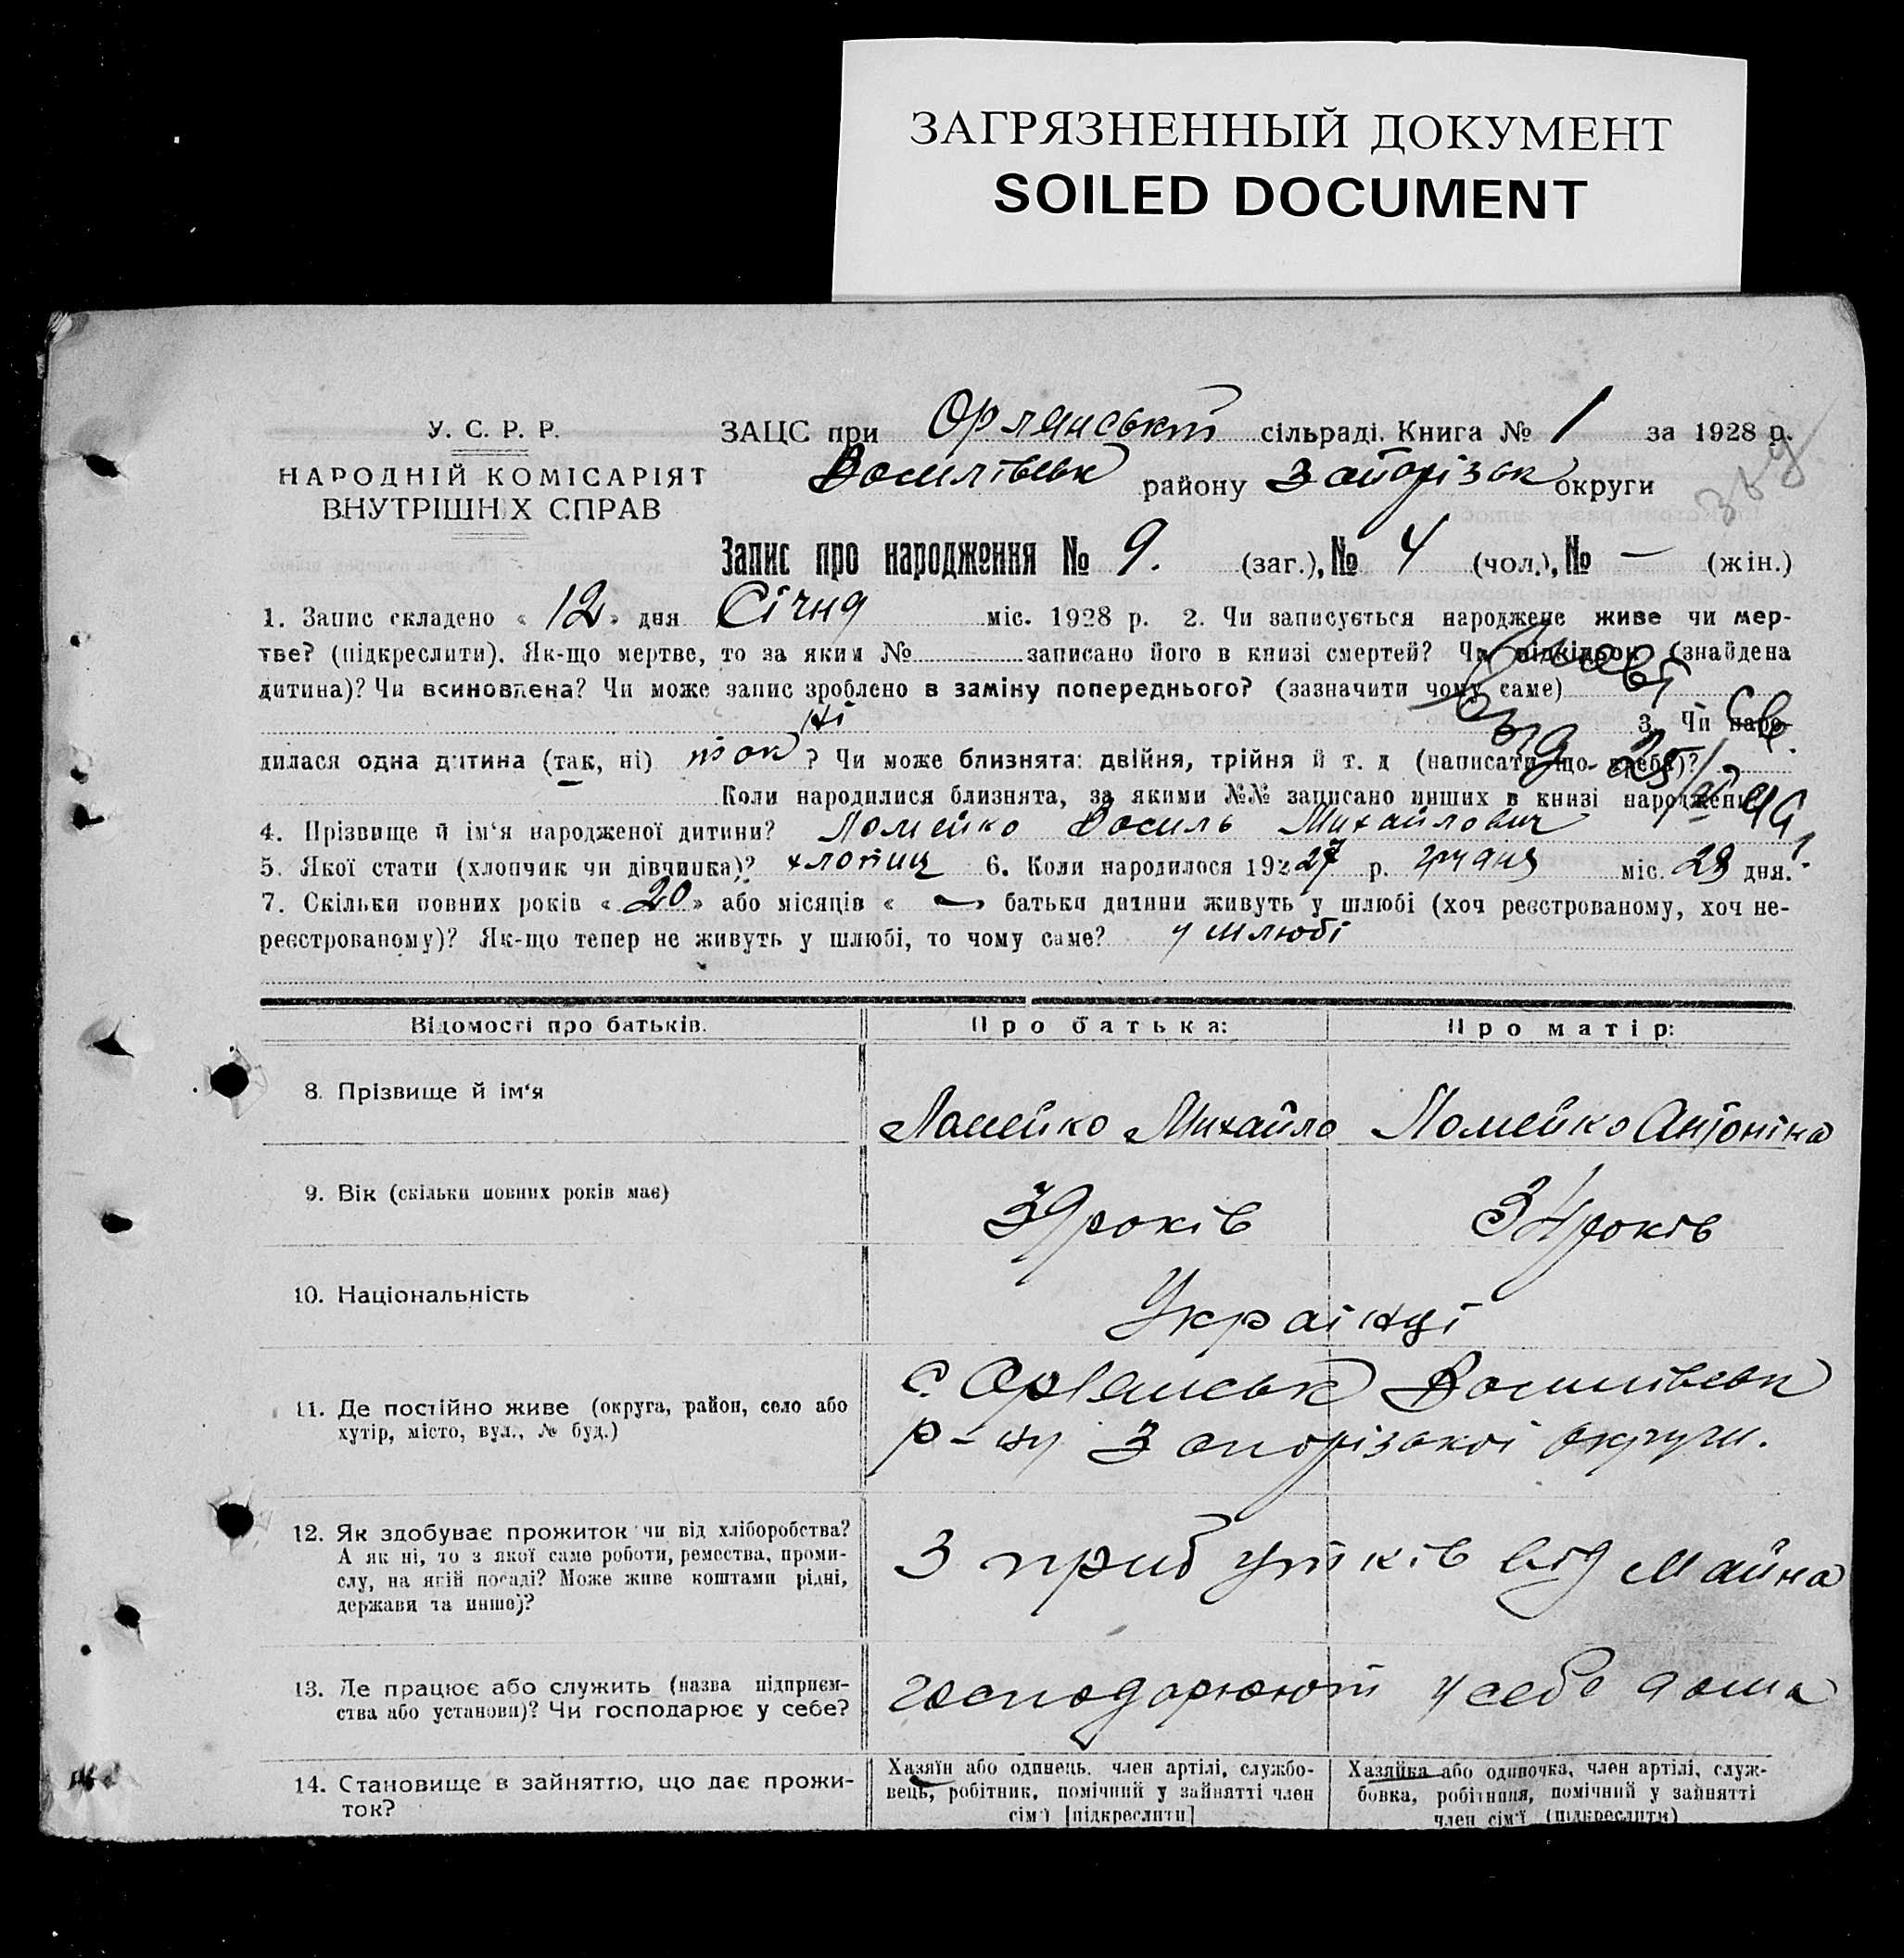 ЗАГРЯЗНЕННЫЙ ДОКУМЕНТ
SOILED DOCUMENT
У. С. Р. Р.
НАРОДНІЙ КОМІСАРІЯТ
ВНУТРІШНІХ СПРАВ
ЗАЦС при Орлянській сільраді. Книга № 1 за 1928 р.
Василівськ району Запорізьк округи
Запис про народження № 9. (заг.), № 4 (чол.), № — (жін.)
1. Запис складено « 12 » дня Січня міс. 1928 р. 2. Чи записується народжене живе чи мер-
тве? (підкреслити). Як-що мертве, то за яким № записано його в книзі смертей? Чи підкідьок (знайдена
дитина)? Чи всиновлена? Чи може запис зроблено в заміну попереднього? (зазначити чому саме)
ні 3. Чи наро-
дилася одна дитина (так, ні) так ? Чи може близнята: двійня, трійня й т. д (написати що треба)?
Коли народилися близнята, за якими №№ записано инших в книзі народжень
4. Прізвище й ім‘я народженої дитини? Ломейко Василь Михайлович
5. Якої стати (хлопчик чи дівчинка)? хлопиц 6. Коли народилося 192 27 р. грудня міс. 29 дня.
7. Скільки повних років « 20 » або місяців « — » батьки дитини живуть у шлюбі (хоч реєстрованому, хоч не-
реєстрованому)? Як-що тепер не живуть у шлюбі, то чому саме? у шлюбі
Відомості про батьків. Про батька: Про матір:
8. Прізвище й ім‘я Ломейко Михайло Ломейко Антоніна
9. Вік (скільки повних років має) 39 років 34 років
10. Національність Українці
11. Де постійно живе (округа, район, село або
хутір, місто, вул., № буд.)
с. Орлянськ Василівськ
р-ну Запорізької округи.
12. Як здобуває прожиток чи від хліборобства?
А як ні, то з якої саме роботи, ремества, проми-
слу, на якій посаді? Може живе коштами рідні,
держави та инше)?
З прибутків від майна
13. Де працює або служить (назва підприєм-
ства або установи)? Чи господарює у себе?
господарюют у себе дома
14. Становище в зайняттю, що дає прожи-
ток?
Хазяїн або одинець, член артілі, службо-
вець, робітник, помічний у зайнятті член
сім‘ї [підкреслити]
Хазяйка або одиночка, член артілі, служ-
бовка, робітниця, помічний у зайнятті
член сім‘ї (підкреслити)